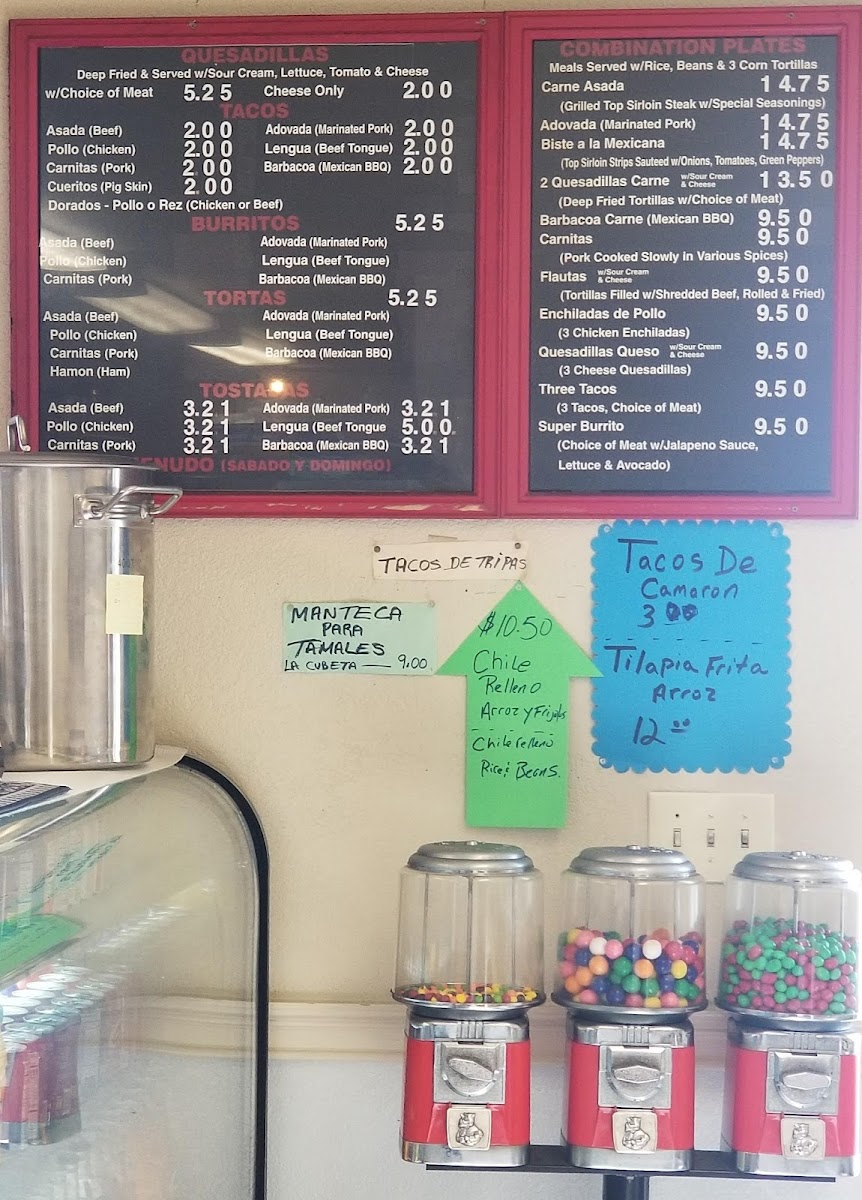 QUESADILLAS
Deep Fried & Served w/Sour Cream, Lettuce, Tomato & Cheese
w/Choice of Meat 5.25 Cheese Only 2.00
TACOS
Asada (Beef) 2.00 Adovada (Marinated Pork) 2.00
Pollo (Chicken) 2.00 Lengua (Beef Tongue) 2.00
Carnitas (Pork) 2.00 Barbacoa (Mexican BBQ) 2.00
Cueritos (Pig Skin) 2.00
Dorados - Pollo o Rez (Chicken or Beef)
BURRITOS 5.25
Asada (Beef) Adovada (Marinated Pork)
Pollo (Chicken) Lengua (Beef Tongue)
Carnitas (Pork) Barbacoa (Mexican BBQ)
TORTAS 5.25
Asada (Beef) Adovada (Marinated Pork)
Pollo (Chicken) Lengua (Beef Tongue)
Carnitas (Pork) Barbacoa (Mexican BBQ)
Hamon (Ham)
TOSTADAS
Asada (Beef) 3.21 Adovada (Marinated Pork) 3.21
Pollo (Chicken) 3.21 Lengua (Beef Tongue 5.00
Carnitas (Pork) 3.21 Barbacoa (Mexican BBQ) 3.21
MENUDO (SABADO Y DOMINGO)
COMBINATION PLATES
Meals Served w/Rice, Beans & 3 Corn Tortillas
Carne Asada 14.75
(Grilled Top Sirloin Steak w/Special Seasonings)
Adovada (Marinated Pork) 14.75
Biste a la Mexicana 14.75
(Top Sirloin Strips Sauteed w/Onions, Tomatoes, Green Peppers)
2 Quesadillas Carne w/Sour Cream & Cheese 13.50
(Deep Fried Tortillas w/Choice of Meat)
Barbacoa Carne (Mexican BBQ) 9.50
Carnitas 9.50
(Pork Cooked Slowly in Various Spices)
Flautas w/Sour Cream & Cheese 9.50
(Tortillas Filled w/Shredded Beef, Rolled & Fried)
Enchiladas de Pollo 9.50
(3 Chicken Enchiladas)
Quesadillas Queso w/Sour Cream & Cheese 9.50
(3 Cheese Quesadillas)
Three Tacos 9.50
(3 Tacos, Choice of Meat)
Super Burrito 9.50
(Choice of Meat w/Jalapeno Sauce,
Lettuce & Avocado)
TACOS DE TRIPAS
MANTECA
PARA
TAMALES
LA CUBETA — 9.00
$10.50
Chile
Relleno
Arroz y Frijoles
Chile relleno
Rice & Beans.
Tacos De
Camaron
3 00
Tilapia Frita
Arroz
12 00